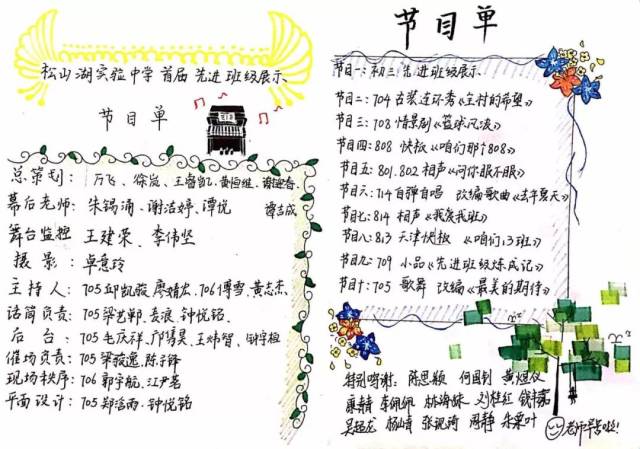 松山湖实验中学首届先进班级展示
节目单
总策划：万飞、徐岚、王睿凯、黄恒維、谢迎春
幕后老师：朱锡涌、谢洁婷、谭悦
舞台监控 王建荣、李伟坚
摄影：卓意玲
主持人：705邱凯骏、廖婧宏、706傅雪、黄志杰
话筒负责：705 袁浪、钟悦铭
后台：705毛庆祥、王炜智
催场负责：705梁骏逸、陈子锋
现场秩序：706郭宇航、江尹茗
平面设计：705郑洁雨、钟悦铭
节目单
节目一：初三先进班级展示
节目二：704 古装连环秀《全村的希望》
节目三：708 情景剧《篮球风波》
节目四：808 快板《咱们那个808》
节目五：801.802 相声《问你服不服》
节目六：714自弹自唱 改编歌曲《去年夏天》
节目七：814 相声《我爱我班》
节目八：813 天津快板《咱们13班》
节目九：709 小品《先进班级炼成记》
节目十：705 歌舞 改编《最美的期待》
特别鸣谢：陈思颖 何国钊 黄煜仪
康精 李佩佩 林海妹 刘桂红 钱丰嘉
吴超龙 杨山奇 张观琦 周静 朱栗叶
老师辛苦啦！